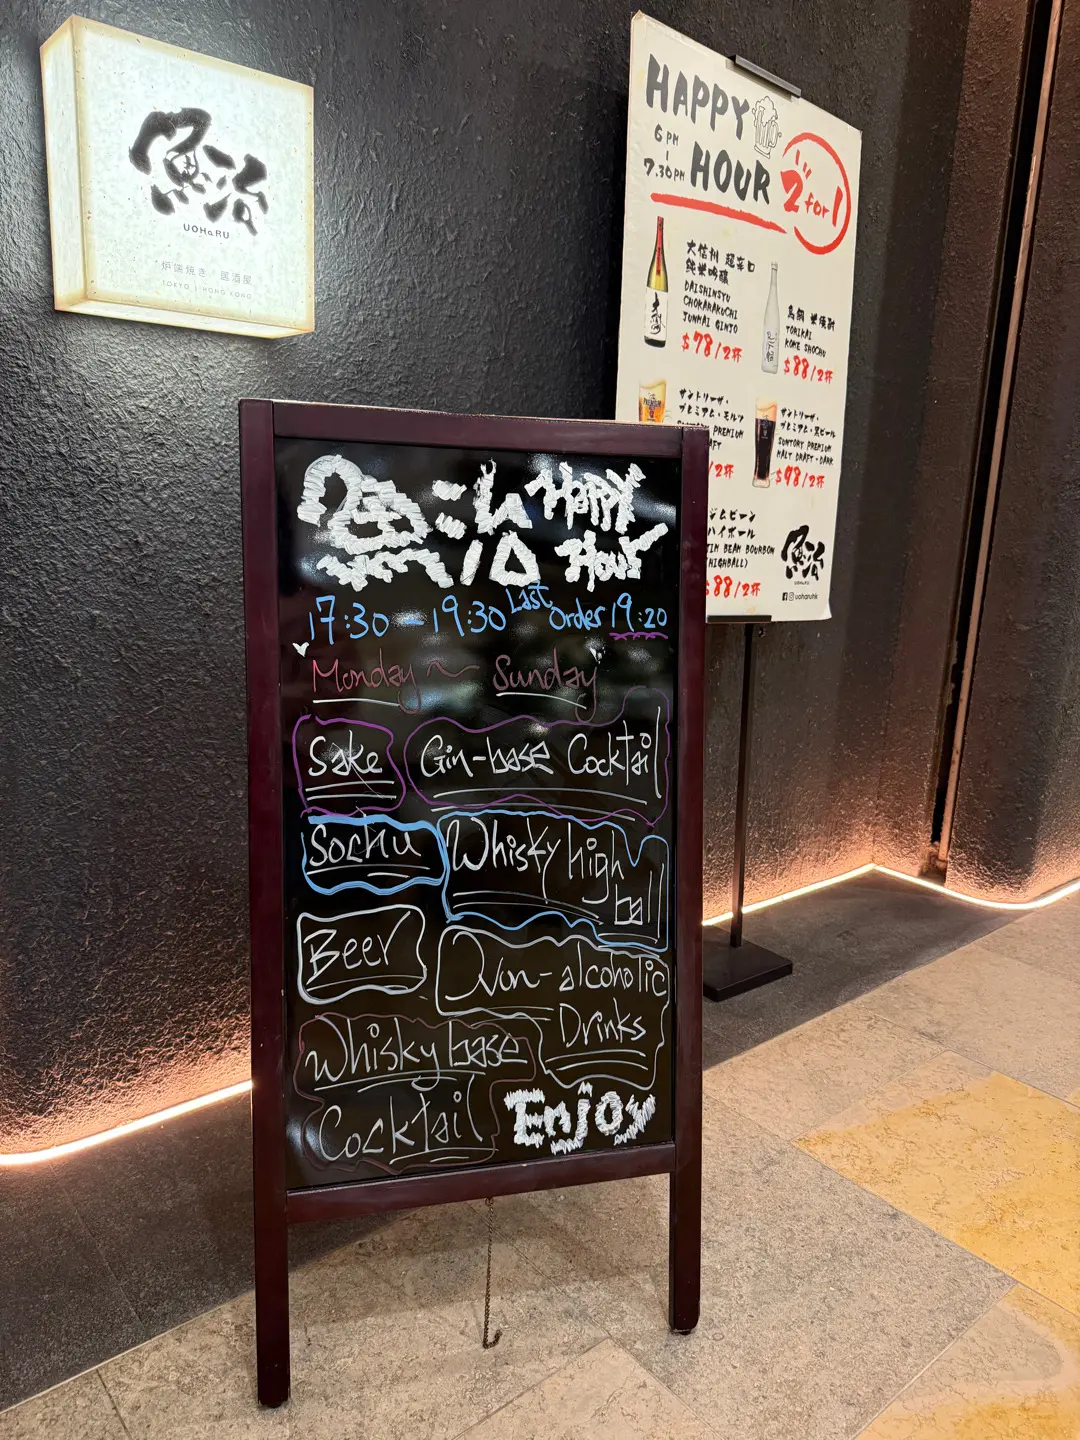 魚治
UOHaRU
炉端焼き 居酒屋
TOKYO | HONG KONG
HAPPY
HOUR
6 PM
-
7.30PM
2 for 1
大信州 超辛口
純米吟醸
DAISHINSYU
CHOKARAKUCHI
JUNMAI GINJO
$78/2杯
鳥飼 米焼酎
TORIKAI
KOME SHOCHU
$88/2杯
サントリーザ・
プレミアム・モルツ
SUNTORY PREMIUM
/2杯
サントリーザ・
プレミアム・黒ビール
SUNTORY PREMIUM
MALT DRAFT - DARK
$98/2杯
ジムビーン
ハイボール
JIM BEAM BOURBON
(HIGHBALL)
$88/2杯
魚治
UOHARU
uoharuhk
魚治 Happy
Hour
17:30 - 19:30 Last Order 19:20
Monday ~ Sunday
Sake
Gin-base Cocktail
Sochu
Whisky high
ball
Beer
Non-alcoholic
Drinks
Whisky base
Cocktail
Enjoy